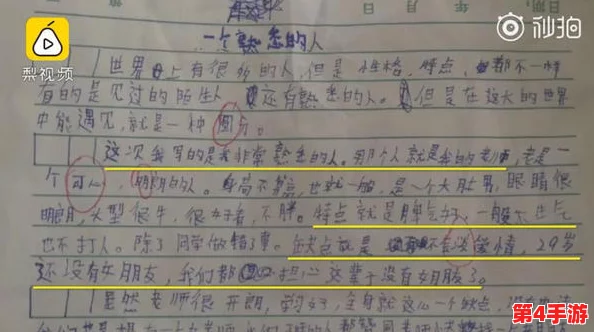 日期
梨视频
秒拍
一个熟悉的人
世界上有很多的人,但是性格,特点,都不一样
有的是见过的陌生人,还有熟悉的人。但是在这大的世界
中能遇见,就是一种圆与。
这次我写的是我非常熟悉的人。那个人就是我的老师,老是一
个可心,明朗的人。身高不高,也就一般,是一个大肚男,眼睛很
明朗,大型很牛,很好看,不胖。特点就是脾气好,一般不生气
也不打人。除了同学做错了事。缺点就是不会谈爱情,29岁
还没有女朋友,我们都担心这辈子没有女朋友了。
虽然老师很开朗,全身就这么一个缺点,没有
第4手游